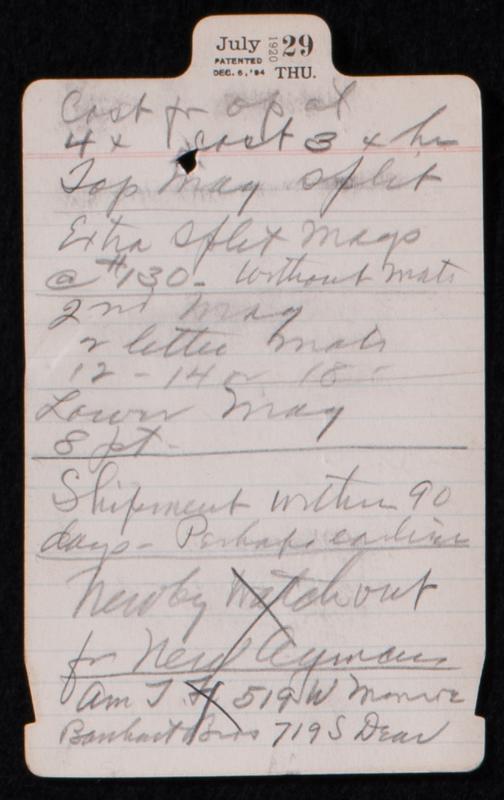 July 1920 29
PATENTED
DEC. 6, '94 THU.
Cost for opal
4x cost 3 x
Top Mag split
Extra Split Mags
@ #130- without mats
2nd Mag
2 letter mats
12 - 14 or 18 -
Lower Mag
8 pt.
Shipment within 90
days - Perhaps earlier
Newby Watch out
for New
Am T 519 W Monroe
Barnhart Bros 719 S Dear